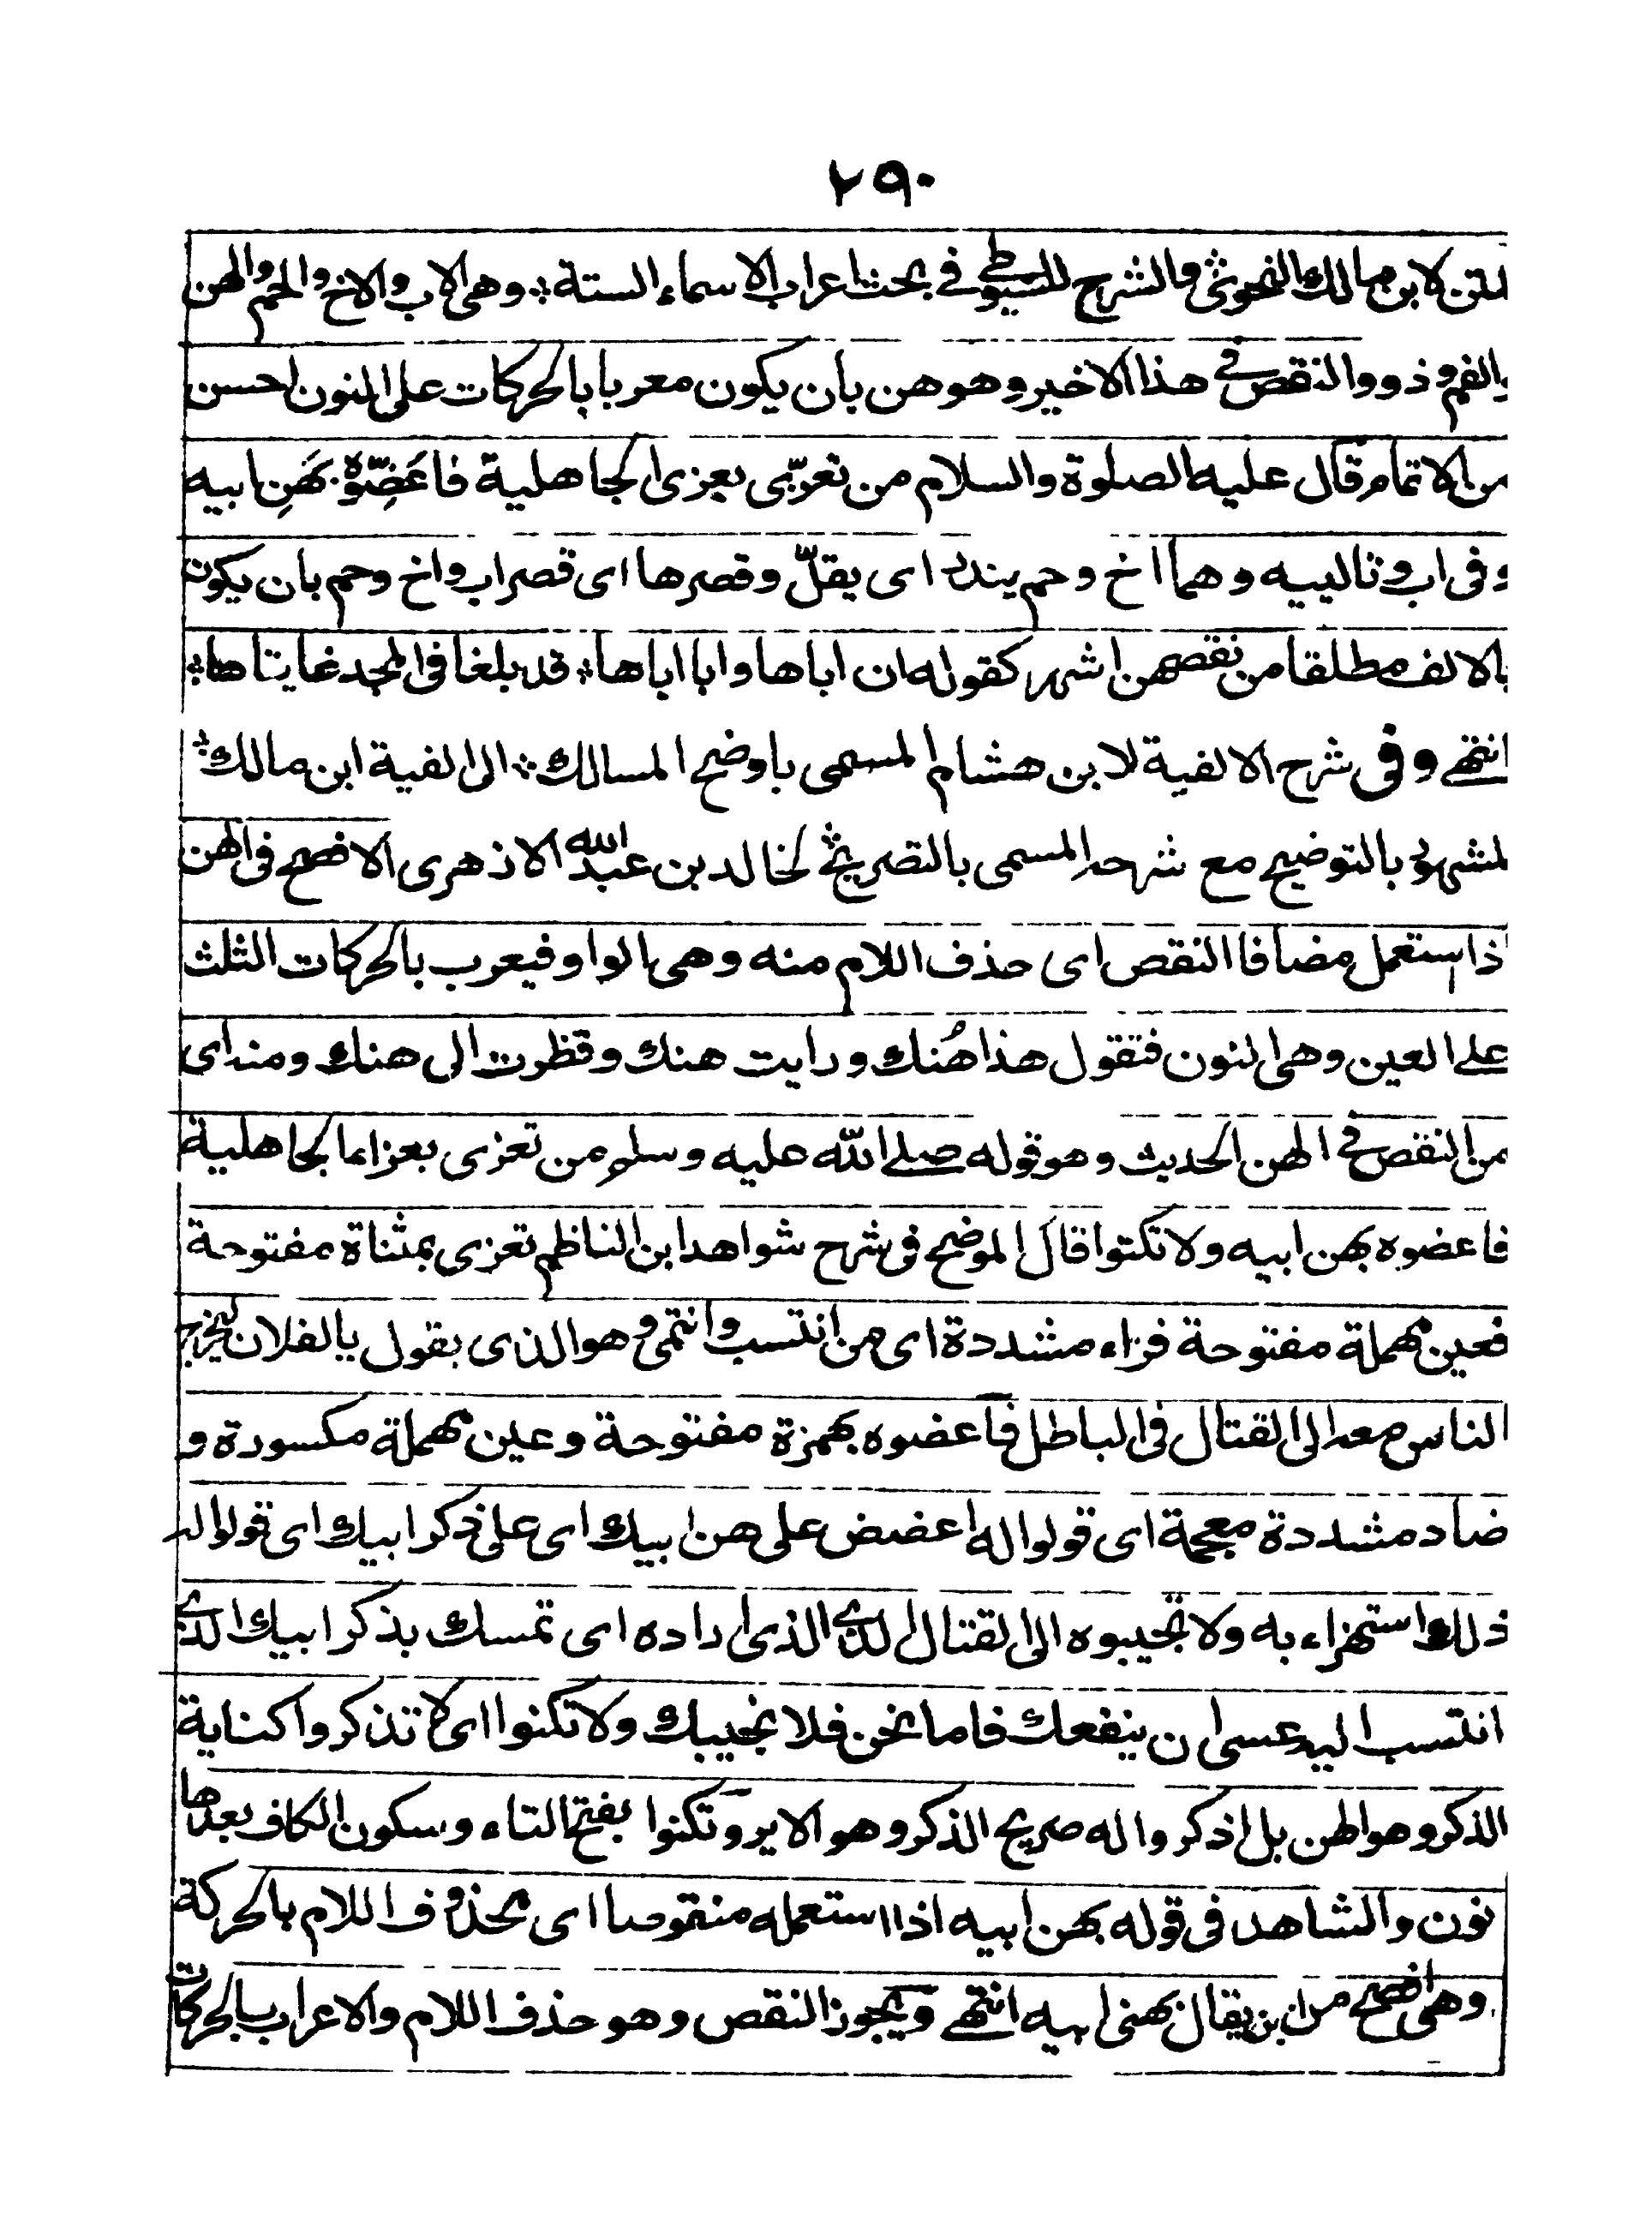 ٢٩٠
لمتن لابن مالك النحوى والشرح للسيوطي في بحث اعراب الاسماء الستة وهى الاب والاخ والحم والهن
والفم وذو والنقص في هذا الاخير وهو هن بان يكون معربا بالحركات على النون احسن
من الاتمام قال عليه الصلوة والسلام من تعزّى بعزى الجاهلية فاعَضِّوْهُ بَهَنِ ابيه
وفى اب وتالييه وهما اخ وحم يندر اى يقلّ وقصرها اى قصر اب واخ وحم بان يكون
بالالف مطلقا من نقصهن اشهر كقوله ان اباها وابا اباها قد بلغا فى المجد غايتاها
انتهى وفى شرح الالفية لابن هشام المسمى باوضح المسالك الى الفية ابن مالك
لمشهور بالتوضيح مع شرحه المسمى بالتصريح لخالد بن عبد الله الازهرى الافصح فى الهن
اذا ستعمل مضافا النقص اى حذف اللام منه وهى الواو فيعرب بالحركات الثلث
على العين وهى النون فتقول هذا هُنك ورايت هنك ونظرت الى هنك ومنه اى
من النقص في الهن الحديث وهو قوله صلى الله عليه وسلم من تعزى بعزاء الجاهلية
فاعضوه بهن ابيه ولا تكنوا قالَ الموضح فى شرح شواهد ابن الناظم تعزى بمثناة مفتوحة
فعين مهملة مفتوحة فزاء مشددة اى من انتسب وانتمى وهو الذى يقول يالفلان ليخرج
الناس معه الى القتال فى الباطل فاعضوه بهمزة مفتوحة وعين مهملة مكسورة و
ضاد مشددة معجمة اى قولوا له اعضض على هن ابيك اى على ذكر ابيك اى قولوا له
ذلك استهزاء به ولا تجيبوه الى القتال الذي الذى اراده اى تمسك بذكر ابيك الذي
انتسب اليه عسى ان ينفعك فاما نحن فلا نجيبك ولا تكنوا اى لا تذكروا كناية
الذكر وهو الهن بل اذكروا له صريح الذكر وهو الاير وتكنوا بفتح التاء وسكون الكاف بعدها
نون والشاهد فى قوله بهن ابيه اذا استعمله منقوصا اى محذوف اللام بالحركة
وهى افصح من ان يقال بهنى ابيه انتهى ويجوز النقص وهو حذف اللام والاعراب بالحركات